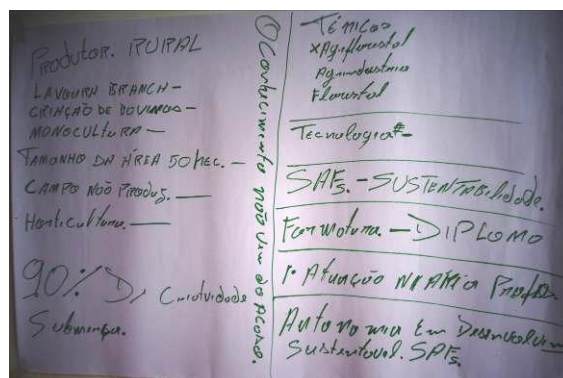 Produtor. RURAL
LAVOURA BRANCH-
CRIAÇÃO DE BOVINOS-
MONOCULTURA-
TAMANHO DA ÁREA 50 HEC.-
CAMPO NÃO PRODUS.-
Horticultura.-
90% D, Criatividade
① Conhecimento não vem do Acaso.
TÉNICOS
X Agroflorestal
Agroindustria
Florestal
Tecnologia*-
SAFs.-SUSTENTABILIDADE.
Formatura.-DIPLOMO
1º Atuação NA ÁRIA Profis.
Autonomia Em Desenvolvim
Sustentavel. SAFs.